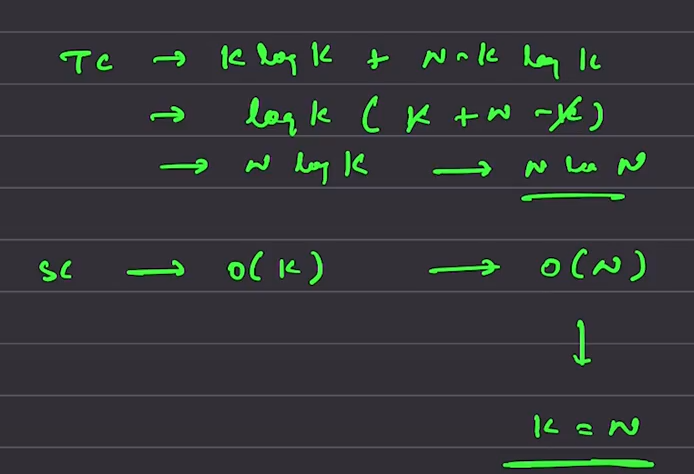 TC → K log K + N-K log K
→ log K ( K + N - K )
→ N log K → N log N
SC → O(K) → O(N)
↓
K = N